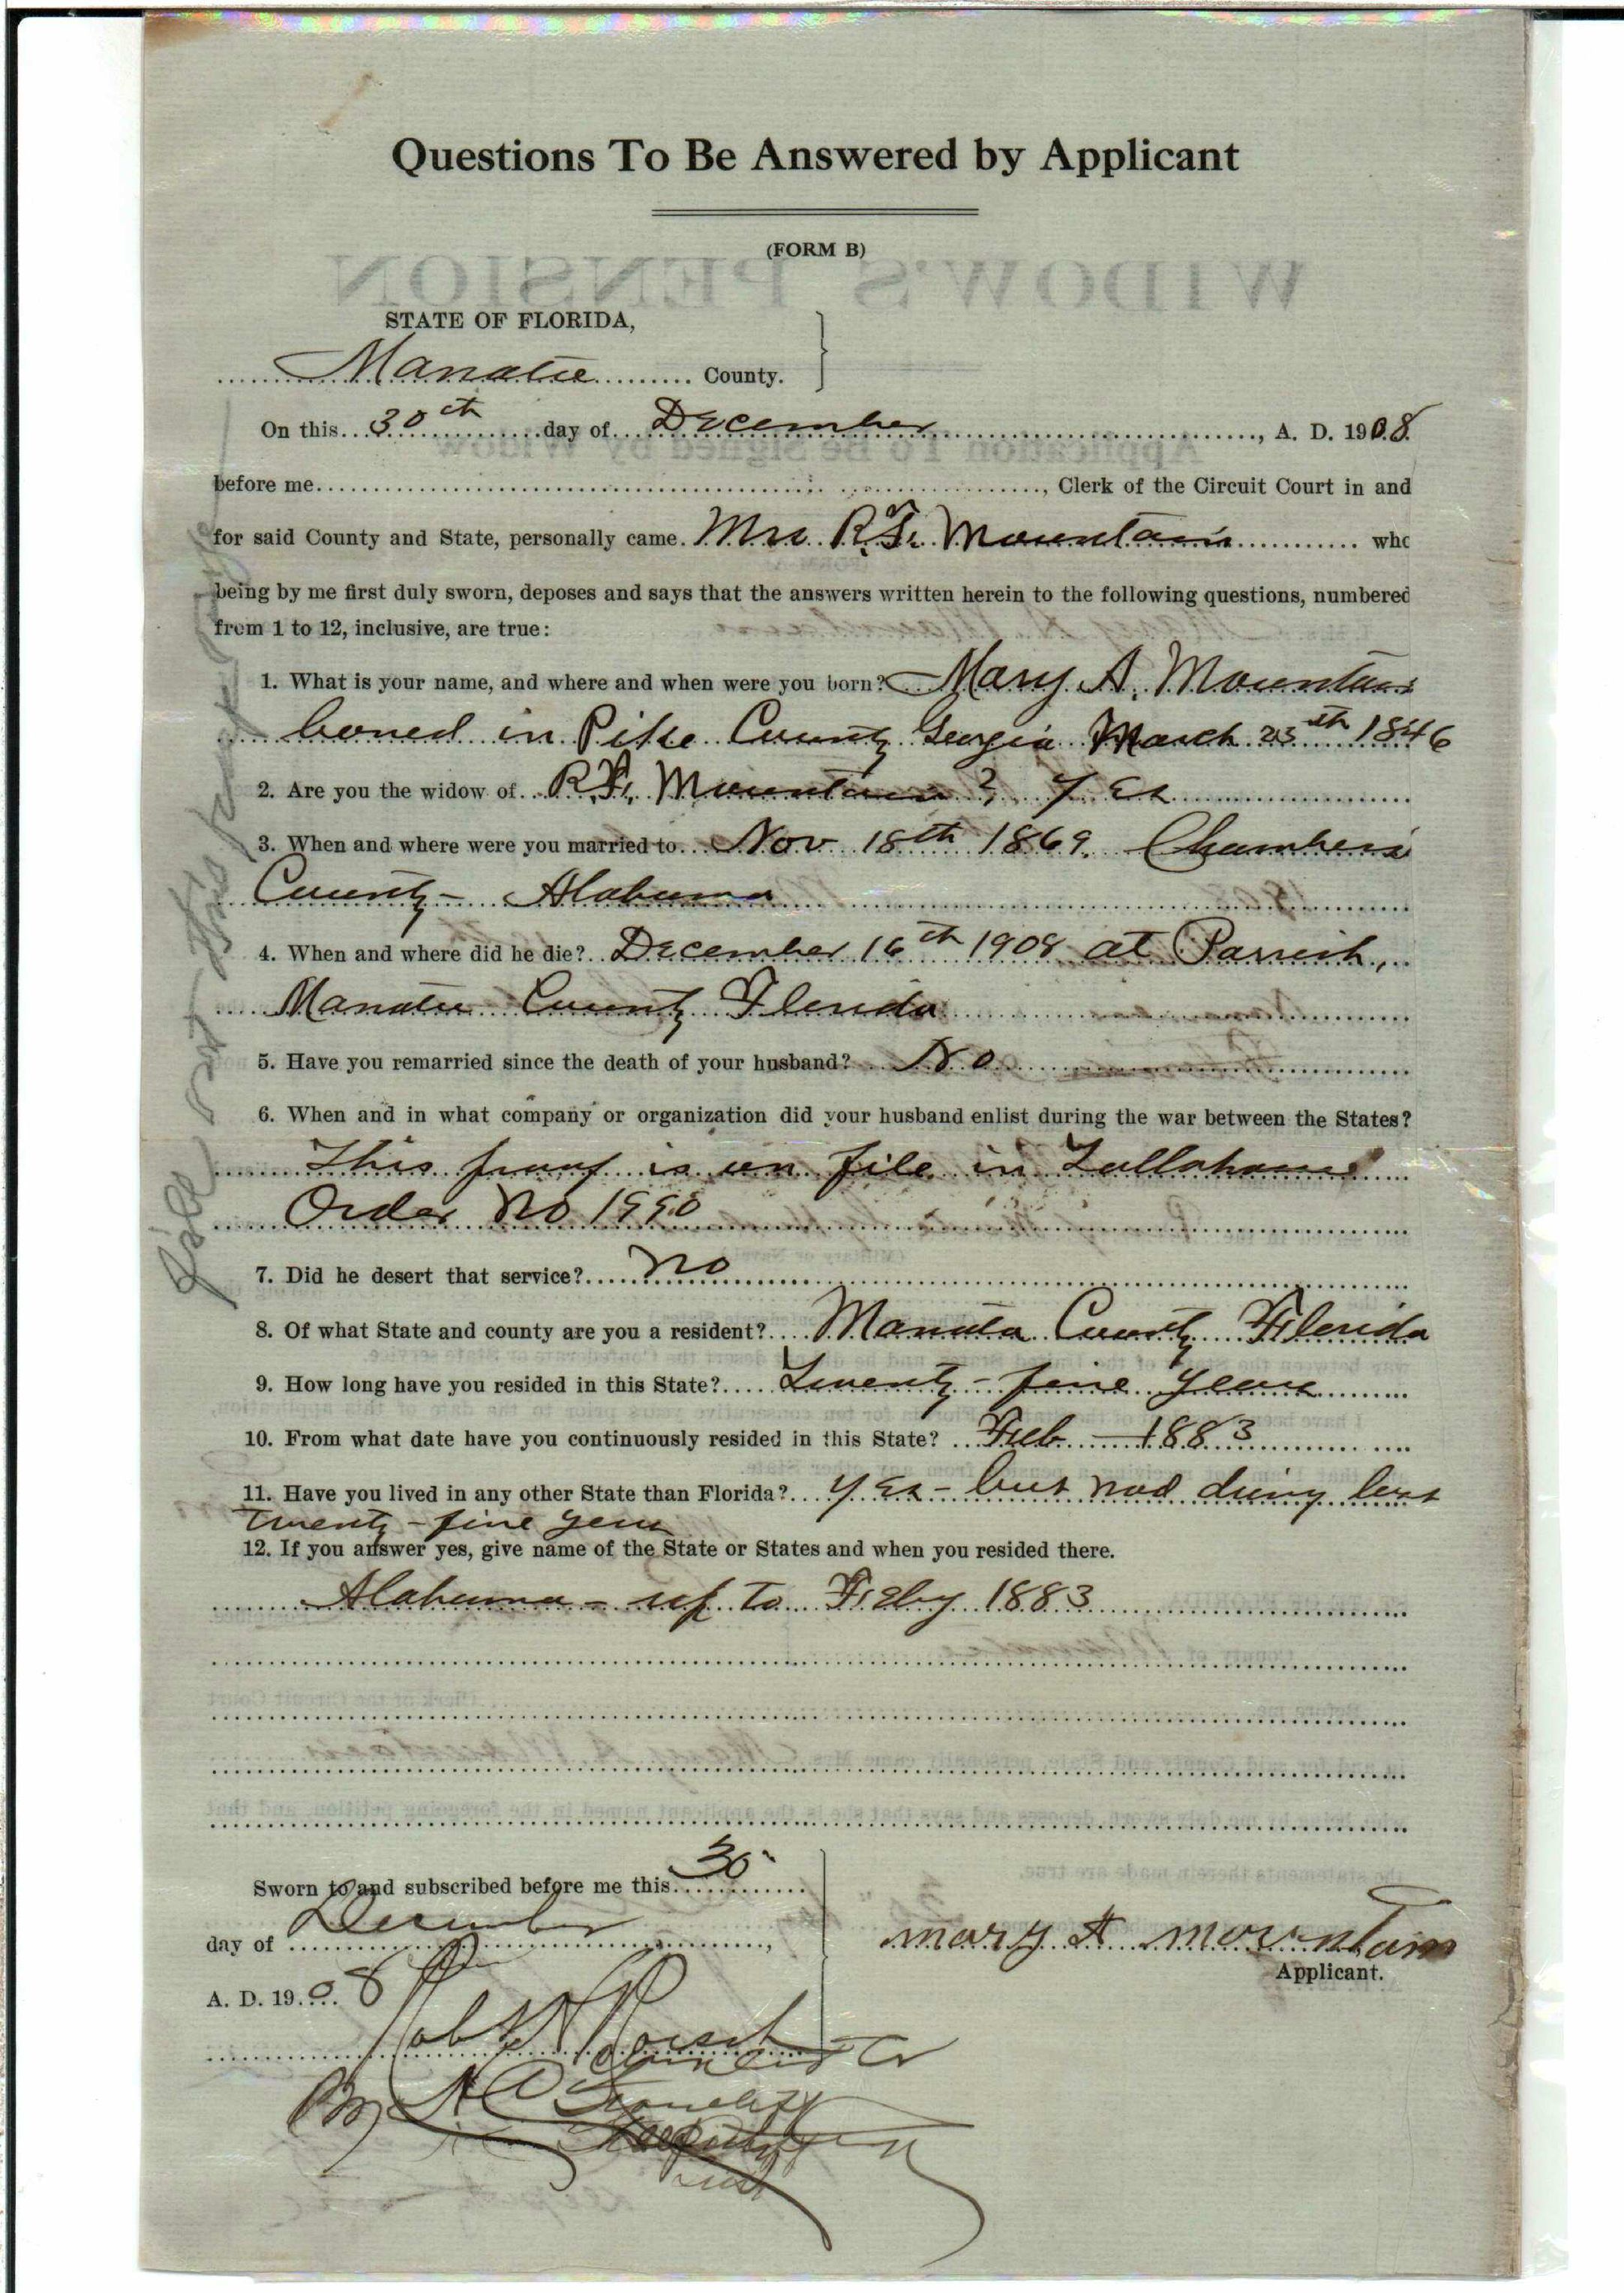 Questions To Be Answered by Applicant
(FORM B)
WIDOW'S PENSION
STATE OF FLORIDA,
Manatee County.
On this 30th day of December, A. D. 1908
before me, Clerk of the Circuit Court in and
for said County and State, personally came Mrs R. F. Mountain who
being by me first duly sworn, deposes and says that the answers written herein to the following questions, numbered
from 1 to 12, inclusive, are true:
1. What is your name, and where and when were you born? Mary A. Mountain
borned in Pike County Georgia March 25th 1846
2. Are you the widow of R. F. Mountain? yes
3. When and where were you married to Nov 18th 1869. Chambers
County - Alabama
4. When and where did he die? December 16th 1908 at Parrish,
Manatee County Florida
5. Have you remarried since the death of your husband? No
6. When and in what company or organization did your husband enlist during the war between the States?
This proof is on file in Tallahassee
Order No 1990
7. Did he desert that service? no
8. Of what State and county are you a resident? Manatee County Florida
9. How long have you resided in this State? Twenty-five years
10. From what date have you continuously resided in this State? Feb - 1883
11. Have you lived in any other State than Florida? yes - but not
twenty-five years
12. If you answer yes, give name of the State or States and when you resided there.
Alabama - up to Feby 1883
Sworn to and subscribed before me this 30"
day of December,
A. D. 1908
mary A mountain
Applicant.